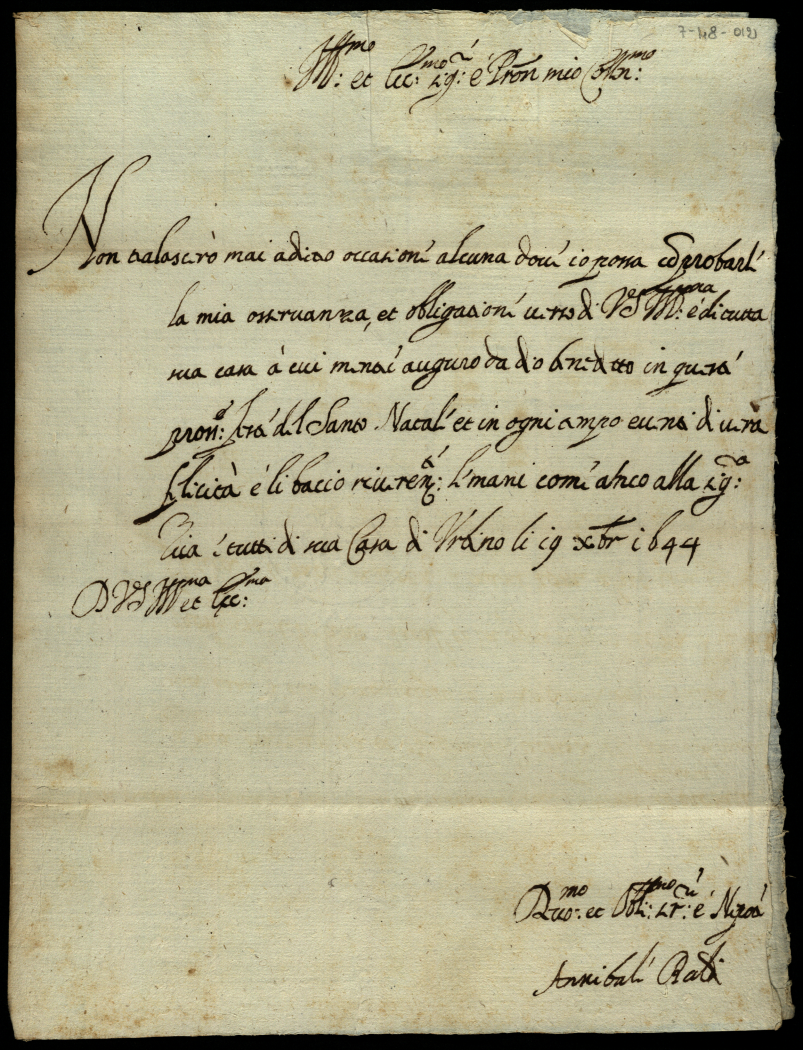 7-148-012
Ill:mo et Ecc:mo Sig:re é Pron mio Coll:mo
Non tralascerò mai adito occasioné alcuna doué io possa cōprobarlé
la mia osseruanza, et obligationé uerso di VS Ill:ma é di tutta
sua casa á cui menté auguro da dio benedetto in questé
pross:e festé del Santo Natalé et in ogni tempo euenti di uera
felicità é li bacio riueren:té le mani comé anco alla Sig:a
Zia é tutti di sua Casa di Vrbino li 19 xbr 1644
D VS Ill:ma et Ecc:ma
Deuo:mo et Obli:mo Ser:ré é Nipoté
Annibalé